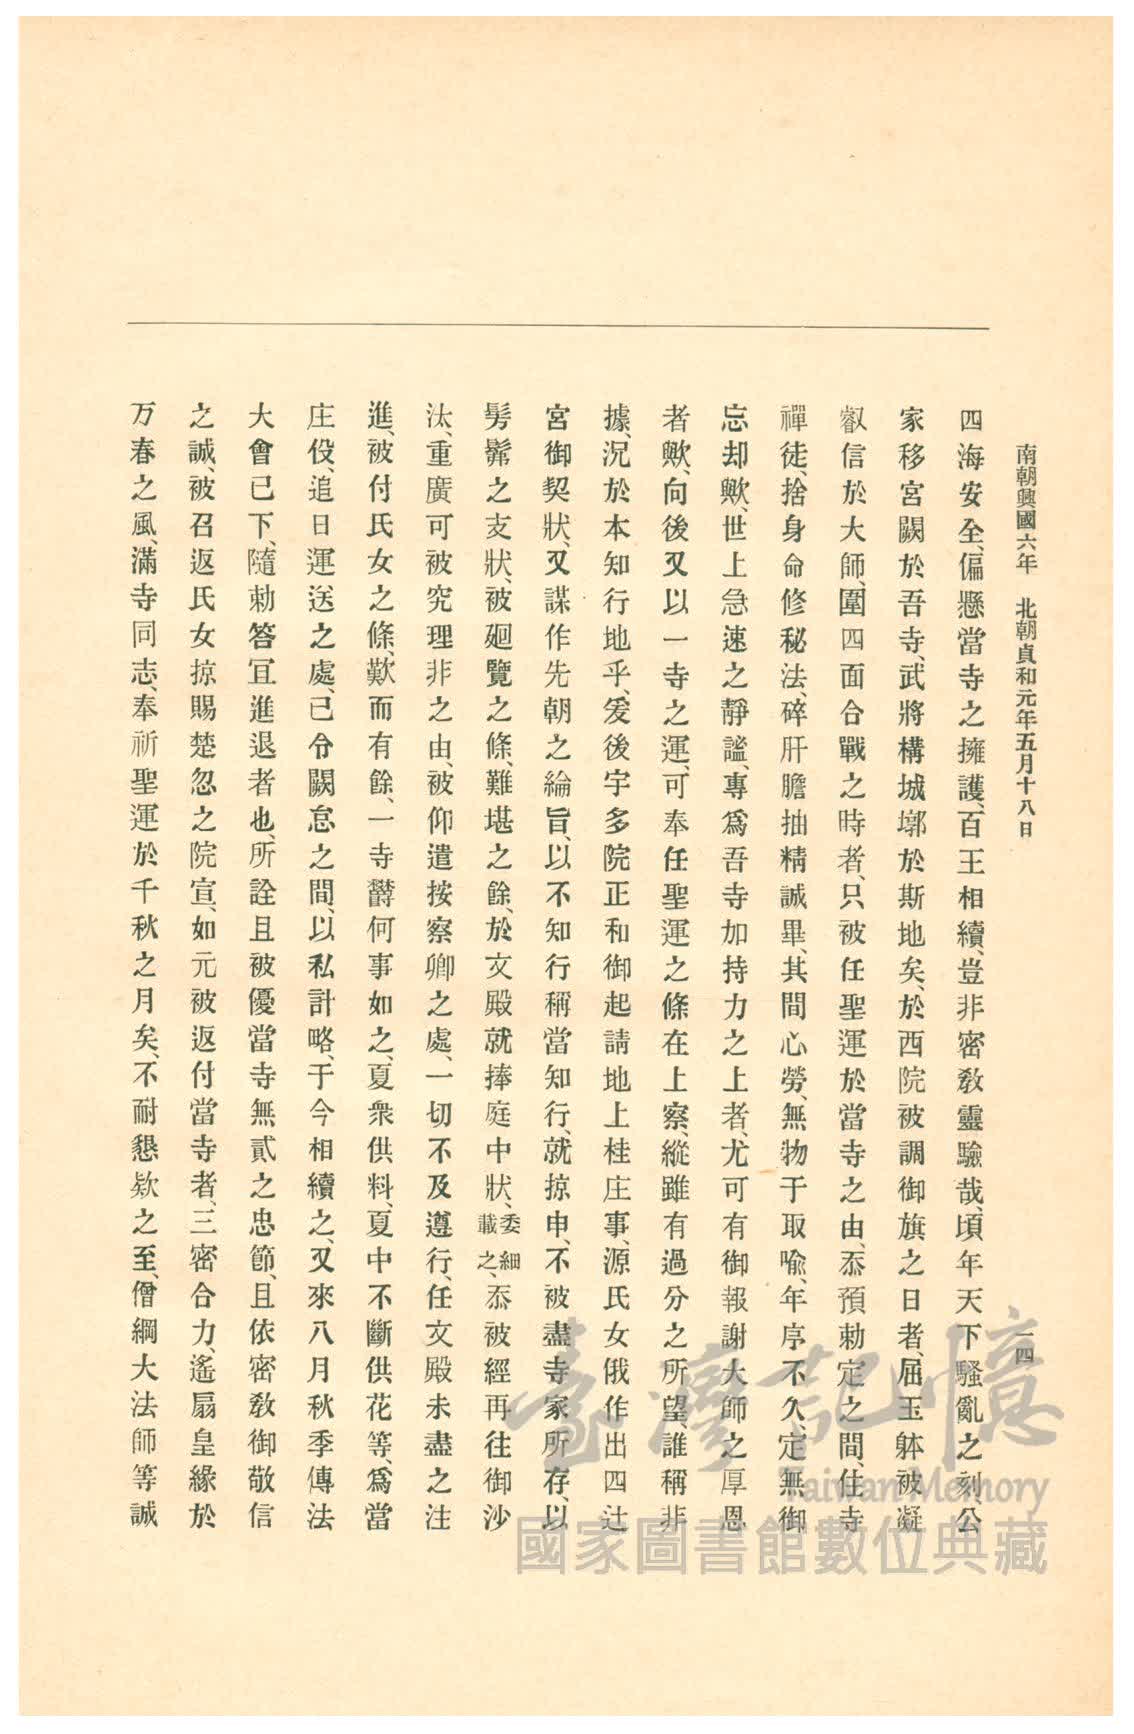 南朝興國六年　北朝貞和元年五月十八日
一四
四海安全、偏懸當寺之擁護、百王相續、豈非密敎靈驗哉、頃年天下騷亂之刻、公
家移宮闕於吾寺、武將構城墎於斯地矣、於西院被調御旗之日者、屈玉躰被凝
叡信於大師、圍四面合戰之時者、只被任聖運於當寺之由、忝預勅定之間、住寺
禪徒、捨身命修秘法、碎肝膽抽精誠畢、其間心勞、無物于取喩、年序不久、定無御
忘却歟、世上急速之靜謐、專爲吾寺加持力之上者、尤可有御報謝大師之厚恩
者歟、向後又以一寺之運、可奉任聖運之條在上察、縱雖有過分之所望、誰稱非
據、況於本知行地乎、爰後宇多院正和御起請地上桂庄事、源氏女俄作出四辻
宮御契狀、又謀作先朝之綸旨、以不知行稱當知行、就掠申、不被盡寺家所存、以
髣髴之支狀、被廻覽之條、難堪之餘、於文殿就捧庭中狀、委細載之、忝被經再往御沙
汰、重廣可被究理非之由、被仰遣按察卿之處、一切不及遵行、任文殿未盡之注
進、被付氏女之條、歎而有餘、一寺欝何事如之、夏衆供料、夏中不斷供花等、爲當
庄役、追日運送之處、已令闕怠之間、以私計略、于今相續之、又來八月秋季傳法
大會已下、隨勅答冝進退者也、所詮且被優當寺無貳之忠節、且依密敎御敬信
之誠、被召返氏女掠賜楚忽之院宣、如元被返付當寺者、三密合力、遙扇皇緣於
万春之風、滿寺同志、奉祈聖運於千秋之月矣、不耐懇欵之至、僧綱大法師等誠
臺灣記憶
Taiwan Memory
國家圖書館數位典藏